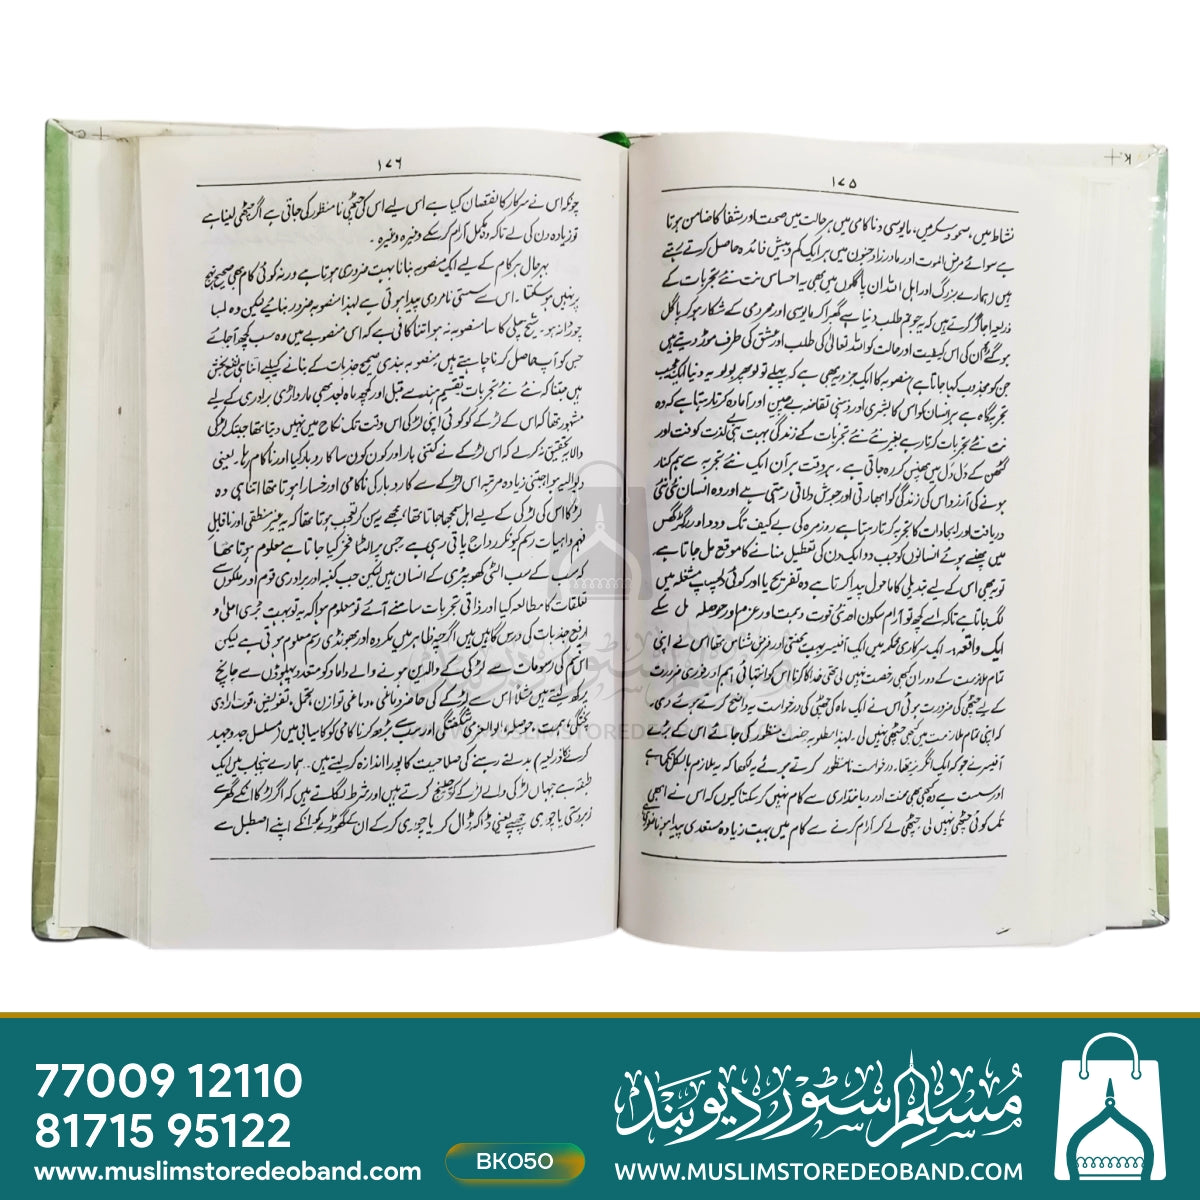 ١٧٥
نشاط میں، جمود و سکر میں، مایوسی و ناکامی میں ہر حالت میں صحت اور شفا کا ضامن ہوتا
ہے سوائے مرض الموت اور مادر زاد جنون میں ہر ایک کم و بیش فائدہ حاصل کرتے رہتے
ہیں (ہمارے بزرگ اور اہل اللہ ان پاگلوں میں بھی یہ احساس نت نئے تجربات کے
ذریعہ اجاگر کرتے ہیں کہ یہ جو تم طلب دنیا سے گھبرا کر مایوسی اور محرومی کے شکار ہو کر پاگل
ہو گئے ہو ان کی اس کیفیت اور حالت کو اللہ تعالیٰ کی طلب اور عشق کی طرف موڑ دیتے ہیں
جن کو مجذوب کہا جاتا ہے) منصوبہ کا ایک جزو یہ بھی ہے کہ پہلے تو لو پھر بولو یہ دنیا ایک عجیب
تجربہ گاہ ہے ہر انسان کو اس کا بشری اور ذہنی تقاضہ بے چین اور آمادہ کرتا رہتا ہے کہ وہ
نت نئے تجربات کرتا رہے بغیر نئے نئے تجربات کے زندگی بہت ہی بے لذت کوفت اور
گھٹن کے دَل دَل میں پھنس کر رہ جاتی ہے۔ ہر وقت ہر آن ایک نئے تجربہ سے ہم کنار
ہونے کی آرزو اس کی زندگی کو ابھارتی اور جوش دلاتی رہتی ہے اور وہ انسان نئی نئی
دریافت اور ایجادات کا تجربہ کرتا رہتا ہے روز مرہ کی بے کیف تگ و دو اور رگڑ گھس
میں پھنسے ہوئے انسانوں کو جب دو ایک دن کی تعطیل منانے کا موقع مل جاتا ہے،
تو یہ بھی اس کے لیے تبدیلی کا ماحول پیدا کرتا ہے وہ تفریح یا اور کوئی دلچسپ مشغلہ میں
لگ جاتا ہے تاکہ اسے کچھ تو آرام سکون اور نئی قوت و ہمت اور عزم اور حوصلہ مل سکے
ایک واقعہ: ایک سرکاری محکمہ میں ایک آفیسر بہت محنتی اور فرض شناس تھا اس نے اپنی
تمام ملازمت کے دوران کبھی رخصت نہیں لی تھی خدا کا کرنا اس کو انتہائی اہم اور فوری ضرورت
کے لیے چھٹی کی ضرورت ہوئی اس نے ایک ماہ کی چھٹی کی درخواست یہ واضح کرتے ہوئے دی
کہ اپنی تمام ملازمت میں کبھی چھٹی نہیں لی، لہٰذا مطلوبہ رخصت منظور کی جائے اس کے بڑے
آفیسر نے جو کہ ایک انگریز تھا، درخواست نا منظور کرتے ہوئے یہ لکھا کہ یہ ملازم بالکل نکما ہے
اور سست ہے وہ کبھی بھی محنت اور دیانتداری سے کام نہیں کر سکتا کیوں کہ اس نے ابھی
تک کوئی چھٹی نہیں لی چھٹی لے کر آرام کرنے سے کام میں بہت زیادہ مستعدی پیدا ہو جاتی
١٧٦
چونکہ اس نے سرکار کا نقصان کیا ہے اس لیے اس کی چھٹی نا منظور کی جاتی ہے اگر چھٹی لینا ہے
تو زیادہ دن کی لے تاکہ وہ مکمل آرام کر سکے وغیرہ وغیرہ۔
بہر حال ہر کام کے لیے ایک منصوبہ بنانا بہت ضروری ہوتا ہے ورنہ کوئی کام بھی صحیح نہج
پر نہیں ہو سکتا۔ اس سے سستی نامردی پیدا ہوتی ہے لہٰذا منصوبہ ضرور بنائیے لیکن وہ لمبا
چوڑا نہ ہو۔ شیخ چلی کا سا منصوبہ نہ ہو اتنا کافی ہے کہ اس منصوبے میں وہ سب کچھ آجائے
جس کو آپ حاصل کرنا چاہتے ہیں منصوبہ بندی صحیح جذبات کے بنانے کیلئے اتنا ہی نفع بخش
ہیں جتنا کہ نئے نئے تجربات تقسیم ہند سے قبل اور کچھ ماہ بعد بھی مارواڑی برادری کے لیے
مشہور تھا کہ اس کے لڑکے کو کوئی اپنی لڑکی اس وقت تک نکاح میں نہیں دیتا تھا جبتک لڑکی
والا یہ تحقیق نہ کر لے کہ اس لڑکے نے کتنی بار اور کون کون سا کاروبار کیا اور ناکام رہا۔ یعنی
دیوالیہ ہوا جتنی زیادہ مرتبہ اس لڑکے سے کاروبار کی ناکامی اور خسارا ہوتا تھا اتنا ہی وہ
لڑکا اس کی لڑکی کے لیے اہل سمجھا جاتا تھا، مجھے یہ سن کر تعجب ہوتا تھا کہ یہ غیر منطقی اور ناقابل
فہم واہیات رسم کیونکر رواج پاتی رہی ہے جس پر الٹا فخر کیا جاتا ہے معلوم ہوتا تھا
کہ سب کے سب الٹی کھوپڑی کے انسان ہیں لیکن جب کنبہ اور برادری قوم اور ملکوں کے
تعلقات کا مطالعہ کیا اور ذاتی تجربات سامنے آئے تو معلوم ہوا کہ یہ تو بہت بڑی اعلیٰ و
ارفع جذبات کی درس گاہیں ہیں اگرچہ ظاہر میں مکروہ اور بھونڈی رسم معلوم ہوتی ہے لیکن
اس قسم کی رسومات سے لڑکی کے والدین ہونے والے داماد کو متعدد پہلوؤں سے جانچ
پرکھ لیتے ہیں مثلاً اس سے لڑکے کی حاضر دماغی، دماغی توازن، تحمل، تفویض، قوت ارادی
پختگی، ہمت، حوصلہ، اولو العزمی شگفتگی اور سب سے بڑھ کر ناکامی کو کامیابی میں (مسلسل جد و جہد
کرنے کا ذریعہ) بدلتے رہنے کی صلاحیت کا پورا اندازہ کر لیتے ہیں۔ ہمارے پنجاب میں ایک
طبقہ ہے جہاں لڑکی والے لڑکے کو چیلنج کرتے ہیں اور شرط لگاتے ہیں کہ اگر لڑکا انکے گھر سے
زبردستی یا چوری چھپے یعنی ڈاکہ ڈال کر یا چوری کر کے ان کے گھوڑے کو انکے اپنے اصطبل سے
WWW.MUSLIMSTOREDEOBAND.COM
77009 12110
81715 95122
www.muslimstoredeoband.com
BK050
مسلم سٹور دیوبند
WWW.MUSLIMSTOREDEOBAND.COM